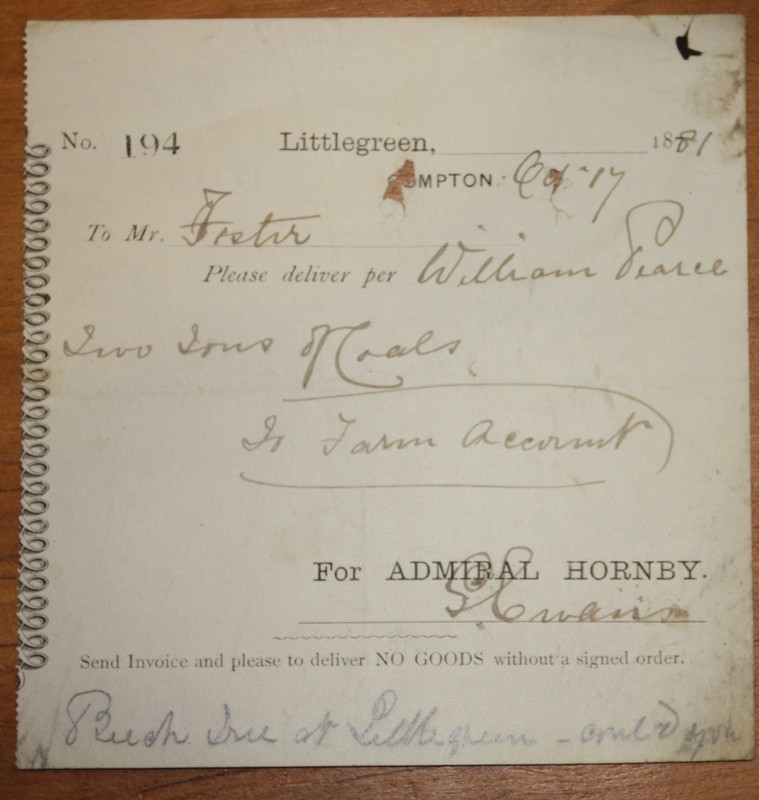 No. 194 Littlegreen, 1881
COMPTON. Oct 17
To Mr. Foster
Please deliver per William Pearce
Two Tons of Coals
To Farm Account
For ADMIRAL HORNBY.
G. Ewans
Send Invoice and please to deliver NO GOODS without a signed order.
Beech Tree at Littlegreen -